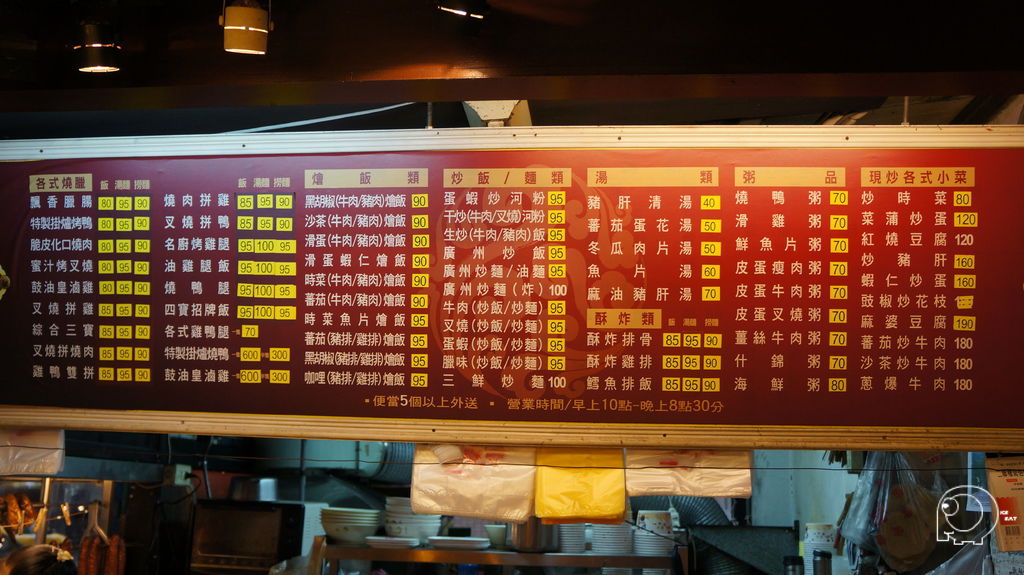 各式燒臘 飯 湯麵 撈麵
飄香臘腸 80 95 90
特製掛爐烤鴨 85 95 90
脆皮化口燒肉 85 95 90
蜜汁烤叉燒 85 95 90
鼓油皇鹵雞 85 95 90
叉燒拼雞 85 95 90
綜合三寶 85 95 90
叉燒拼燒肉 85 95 90
雞鴨雙拼 85 95 90
飯 湯麵 撈麵
燒肉拼雞 85 95 90
叉燒拼鴨 85 95 90
名廚烤雞腿 95 100 95
油雞腿飯 95 100 95
燒鴨腿 95 100 95
四寶招牌飯 95 100 95
各式雞鴨腿 一隻 70
特製掛爐燒鴨 一隻 600 半隻 300
鼓油皇鹵雞 一隻 600 半隻 300
燴飯類
黑胡椒(牛肉/豬肉)燴飯 90
沙茶(牛肉/豬肉)燴飯 90
滑蛋(牛肉/豬肉)燴飯 90
滑蛋蝦仁燴飯 90
時菜(牛肉/豬肉)燴飯 90
蕃茄(牛肉/豬肉)燴飯 90
時菜魚片燴飯 95
蕃茄(豬排/雞排)燴飯 95
黑胡椒(豬排/雞排)燴飯 95
咖哩(豬排/雞排)燴飯 95
炒飯/麵類
蛋蝦炒河粉 95
干炒(牛肉/叉燒)河粉 95
生炒(牛肉/豬肉)飯 95
廣州炒飯 95
廣州炒麵/油麵 95
廣州炒麵(炸) 100
牛肉(炒飯/炒麵) 95
叉燒(炒飯/炒麵) 95
蛋蝦(炒飯/炒麵) 95
臘味(炒飯/炒麵) 95
三鮮炒麵 100
湯類
豬肝清湯 40
蕃茄蛋花湯 50
冬瓜肉片湯 50
魚片湯 60
麻油豬肝湯 70
酥炸類 飯 湯麵 撈麵
酥炸排骨 85 95 90
酥炸雞排 85 95 90
鱈魚排飯 85 95 90
粥品
燒鴨粥 70
滑雞粥 70
鮮魚片粥 70
皮蛋瘦肉粥 70
皮蛋牛肉粥 70
皮蛋叉燒粥 70
薑絲牛肉粥 70
什錦粥 70
海鮮粥 80
現炒各式小菜
炒時菜 80
菜蒲炒蛋 120
紅燒豆腐 120
炒豬肝 160
蝦仁炒蛋 160
豉椒炒花枝
麻婆豆腐 190
蕃茄炒牛肉 180
沙茶炒牛肉 180
蔥爆牛肉 180
▪便當5個以上外送 ▪ 營業時間/早上10點-晚上8點30分
ICE
EAT